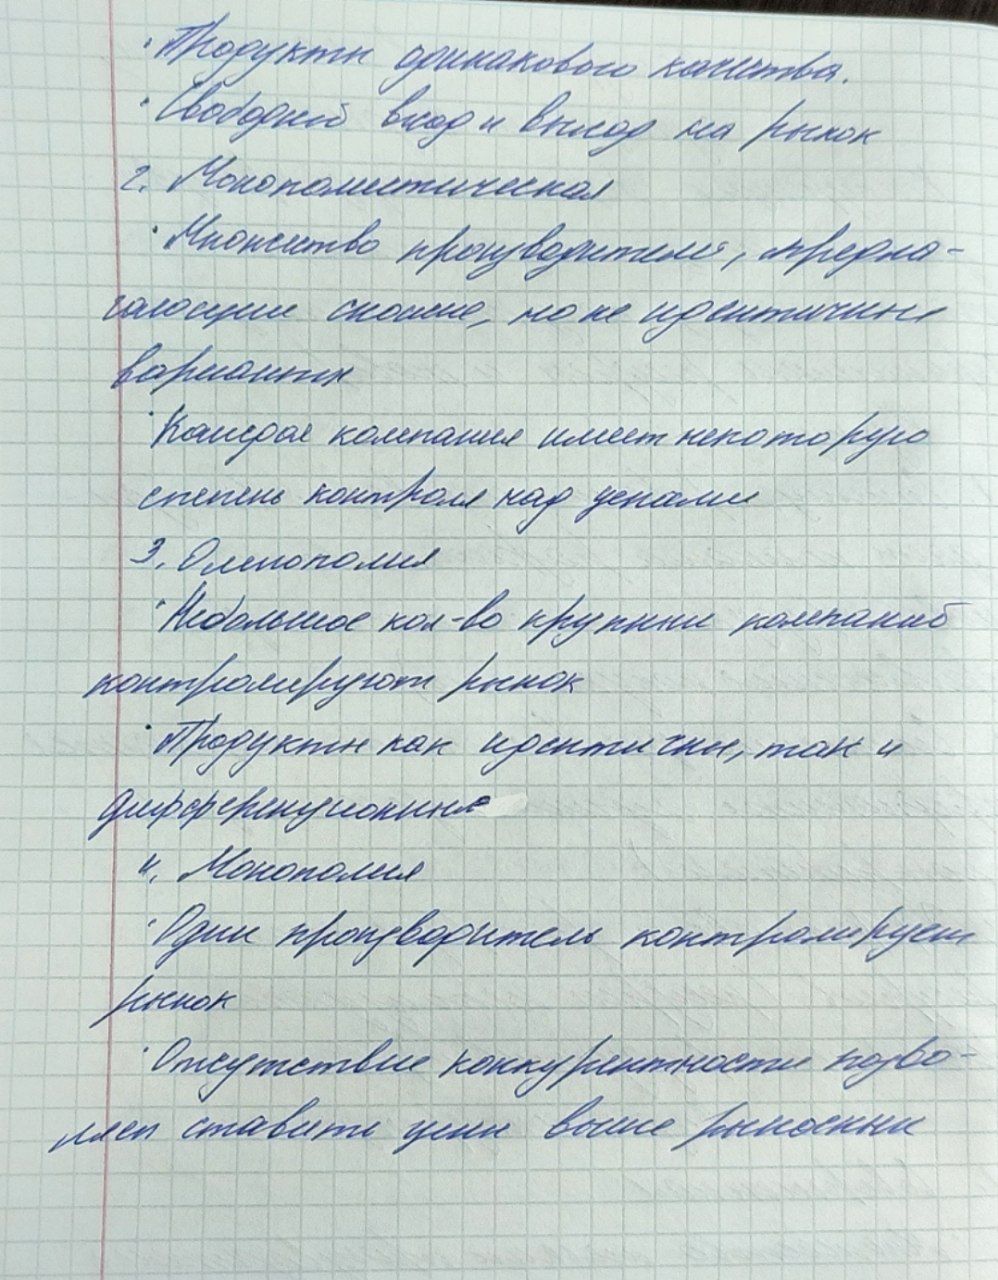 · Продукты одинакового качества.
· Свободный вход и выход на рынок
2. Монополистическая
· Множество производителей, предла-
гающие схожие, но не идентичные
варианты
· Каждая компания имеет некоторую
степень контроля над ценами
3. Олигополия
· Небольшое кол-во крупных компаний
контролируют рынок
· Продукты как идентичны, так и
дифференционные
4. Монополия
· Один производитель контролирует
рынок
· Отсутствие конкурентности позво-
ляет ставить цены выше рыночных